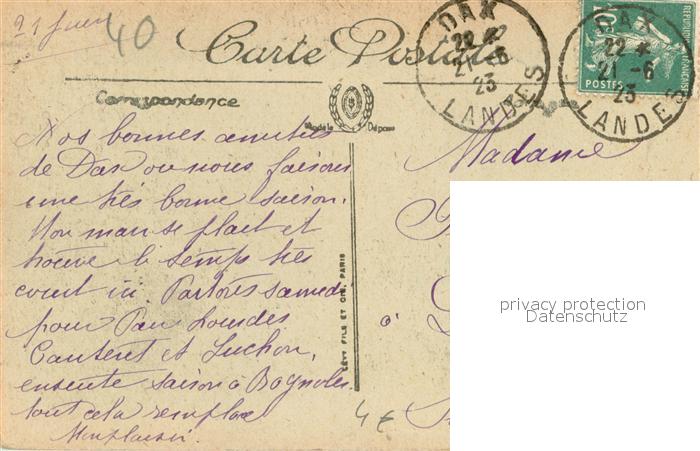 21 Juin
40
Carte Postale
DAX
22 *
21-6
23
LANDES
DAX
22 *
21-6
23
LANDES
POSTES
Correspondance
Modèle Déposé
Nos bonnes amitiés
de Dax où nous faisons
une très bonne saison.
Mon mari se plait et
trouve le temps très
court ici. Partons samedi
pour Pau Lourdes
Cauteret et Luchon,
ensuite saison à Bagnoles
tout cela remplace
Madame
à
LEVY FILS ET CIE, PARIS
4 €
privacy protection
Datenschutz